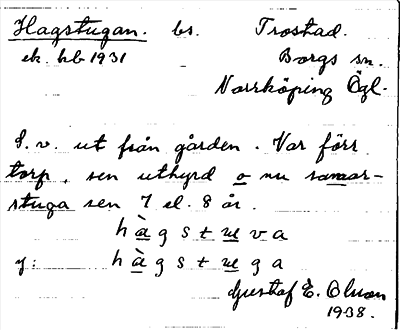 Hagstugan. bs. Trostad.
ek. hb 1931 Borgs sn.
Norrköping Ögl.
S. v. ut från gården. Var förr
torp, sen uthyrd o nu somar-
stuga sen 7 el. 8 år.
hàgstuva
y: hàgstuga
Gustaf E. Olson
1938.